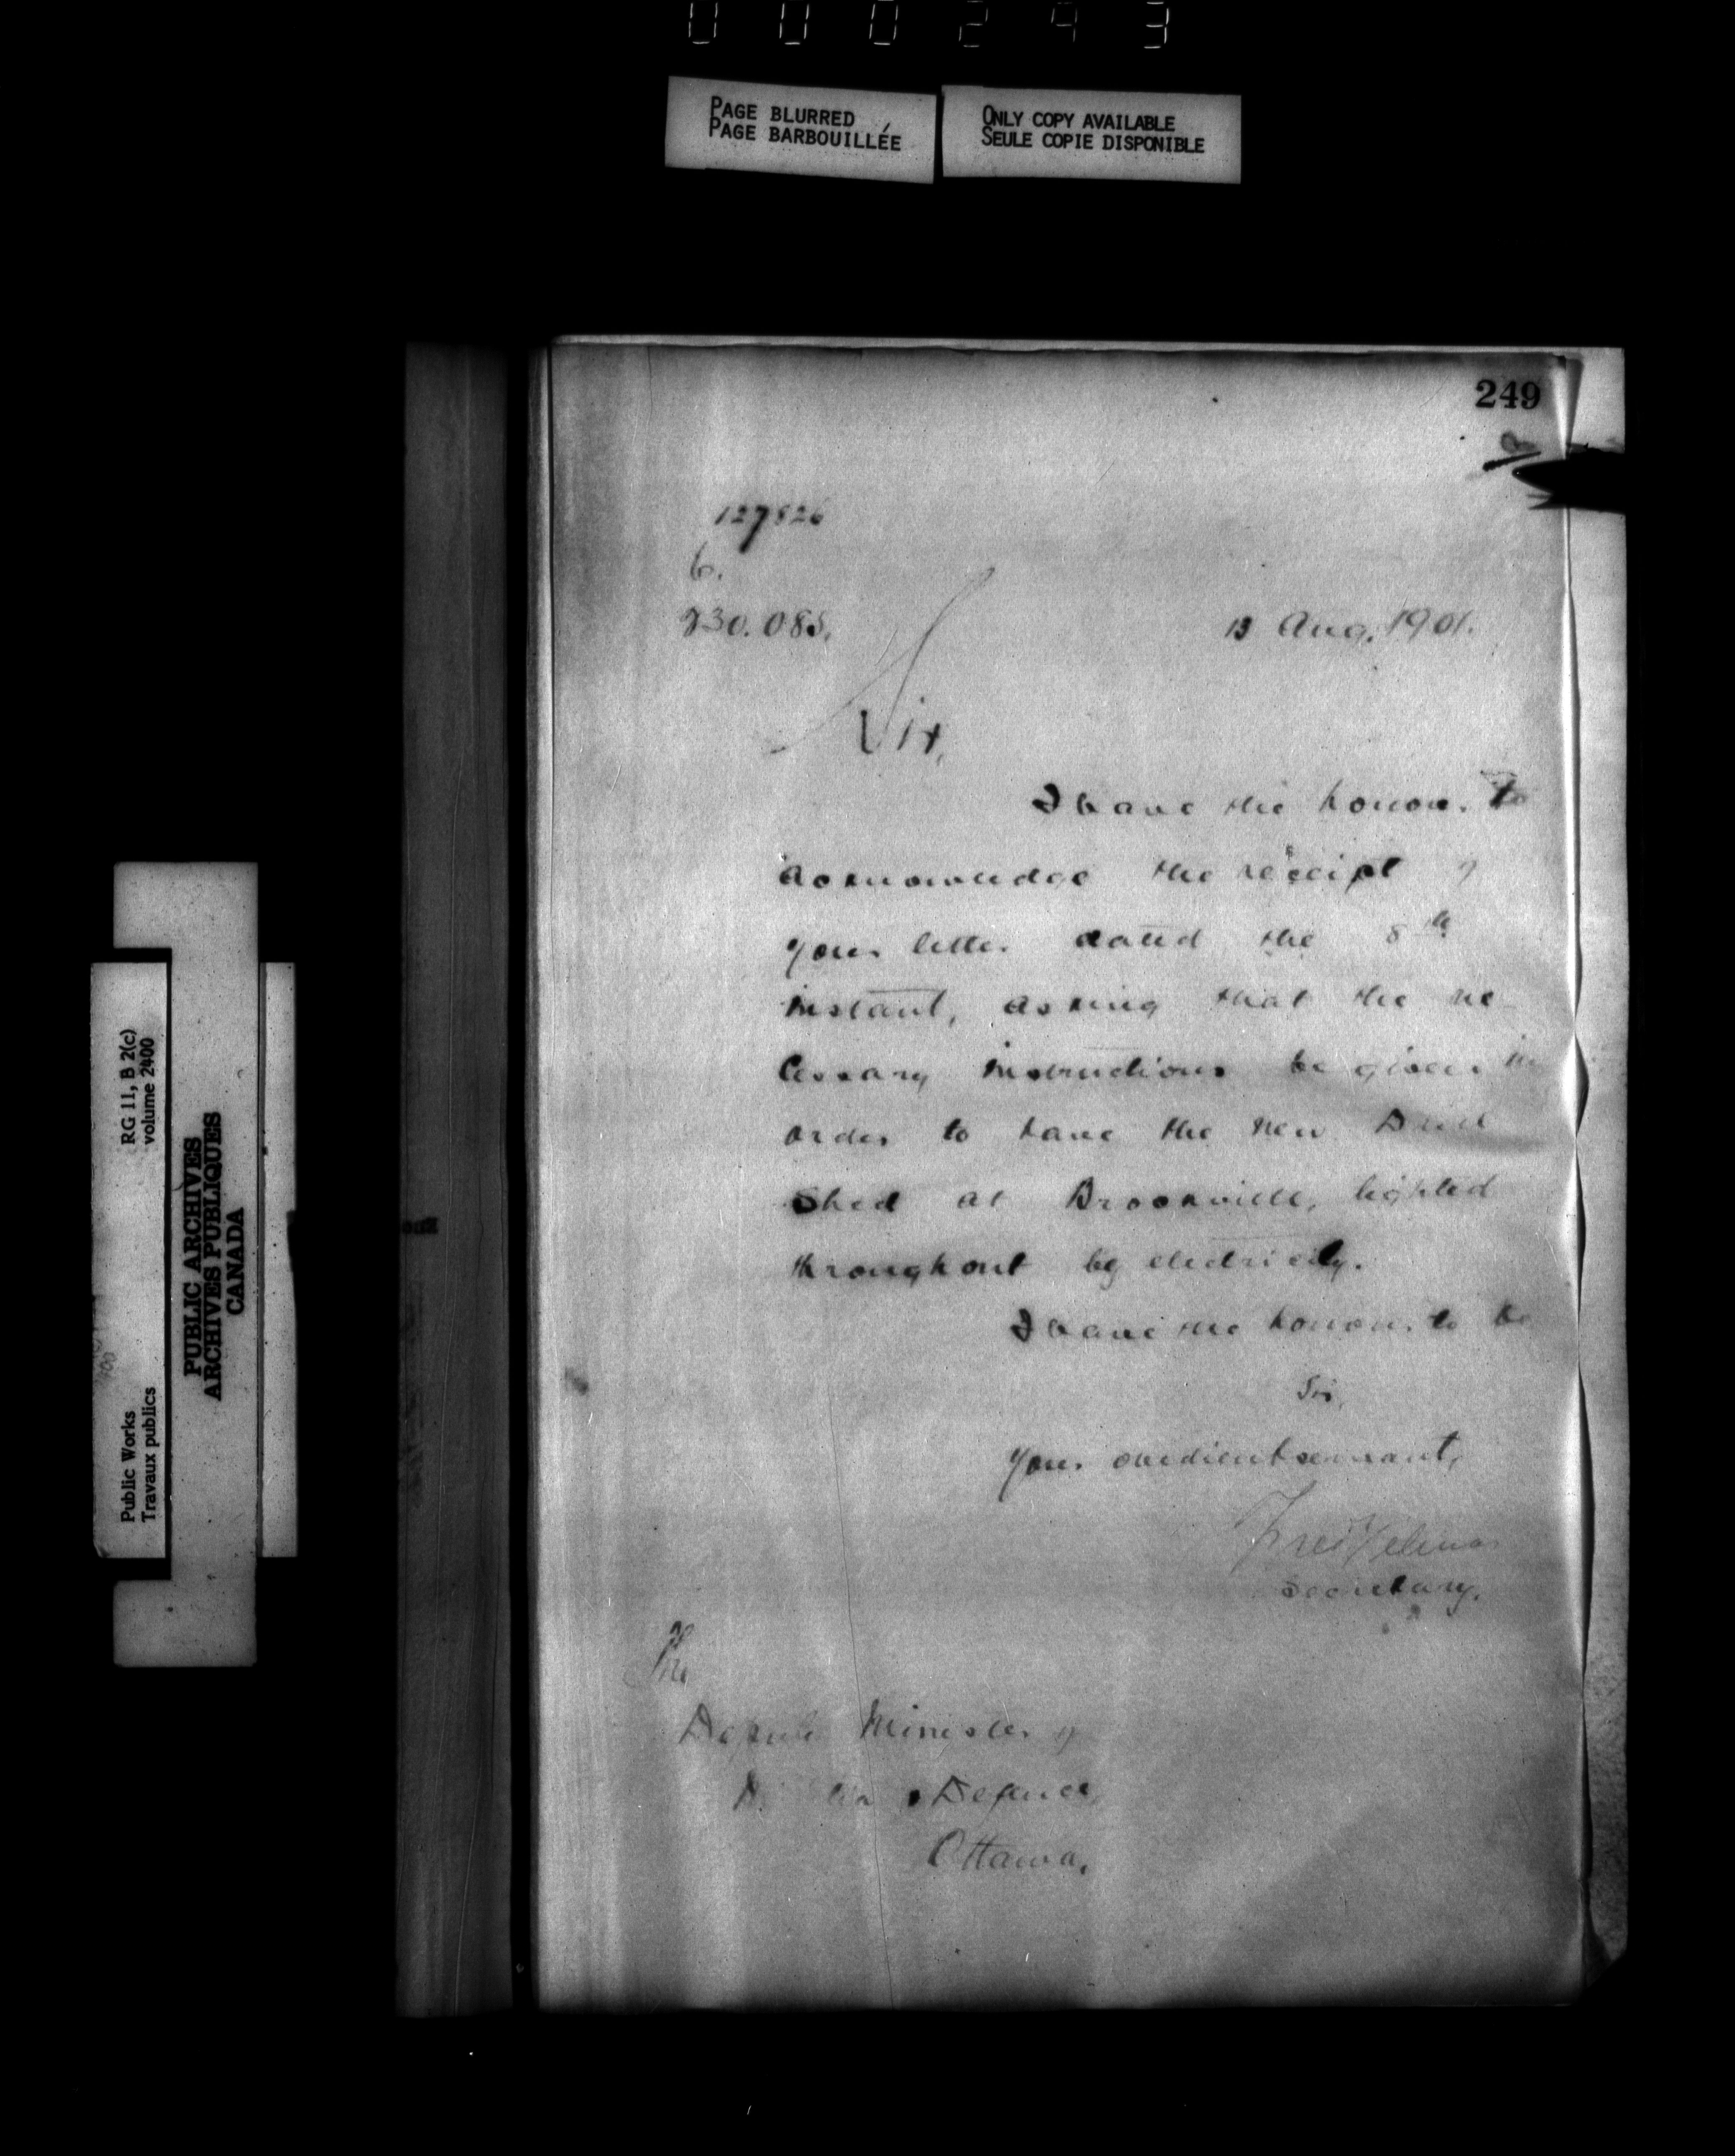 000243
PAGE BLURRED
PAGE BARBOUILLÉE
ONLY COPY AVAILABLE
SEULE COPIE DISPONIBLE
249
127826
6.
230.085.
13 Aug. 1901.
Sir,
I have the honor to
acknowledge the receipt of
your letter dated the 8th
instant, asking that the ne
cessary instructions be given in
order to have the new Drill
Shed at Brockville, lighted
throughout by electricity.
I have the honor to be
Sir,
Your obedient servant,
Fred Gélinas
Secretary.
The
Deputy Minister of
Defence,
Ottawa.
Public Works
Travaux publics
RG 11, B 2(c)
volume 2400
PUBLIC ARCHIVES
ARCHIVES PUBLIQUES
CANADA